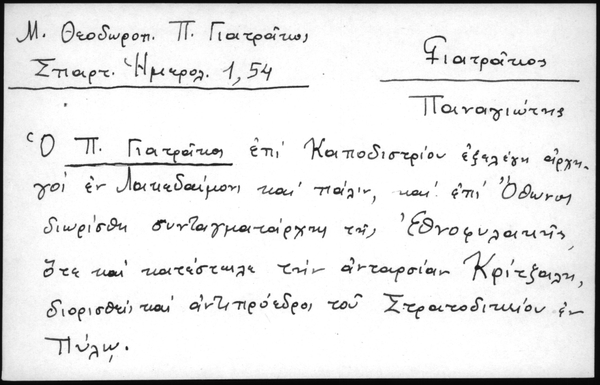 Μ. Θεοδωροπ. Π. Γιατρᾶκος
Σπαρτ. Ἡμερολ. 1,54
Γιατρᾶκος
Παναγιώτης
Ὁ Π. Γιατρᾶκος ἐπί Καποδιστρίου ἐξελέγη ἀρχη-
γός ἐν Λακεδαίμονι καί πάλιν, καί ἐπί Ὄθωνος
διωρίσθη συνταγματάρχης τῆς Ἐθνοφυλακῆς,
ὅτε καί κατέστειλε τήν ἀνταρσίαν Κρίτζαλη,
διορισθείς καί ἀντιπρόεδρος τοῦ Στρατοδικείου ἐν
Πύλῳ.